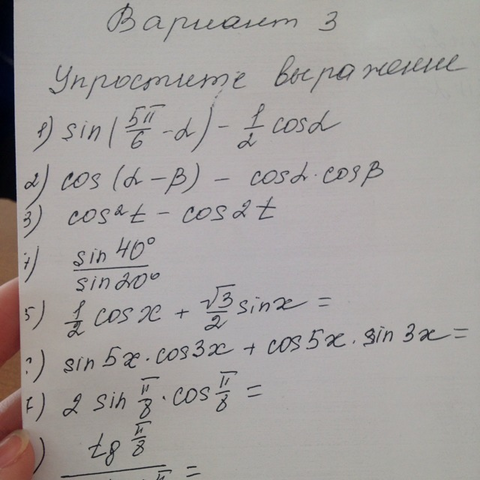 Вариант 3
Упростите выражение
1) sin(5π/6 - α) - 1/2 cosα
2) cos(α - β) - cosα·cosβ
3) cos²t - cos2t
) sin40°/sin20°
5) 1/2 cosx + √3/2 sinx =
) sin5x·cos3x + cos5x·sin3x =
7) 2 sin π/8 · cos π/8 =
) tg π/8
=